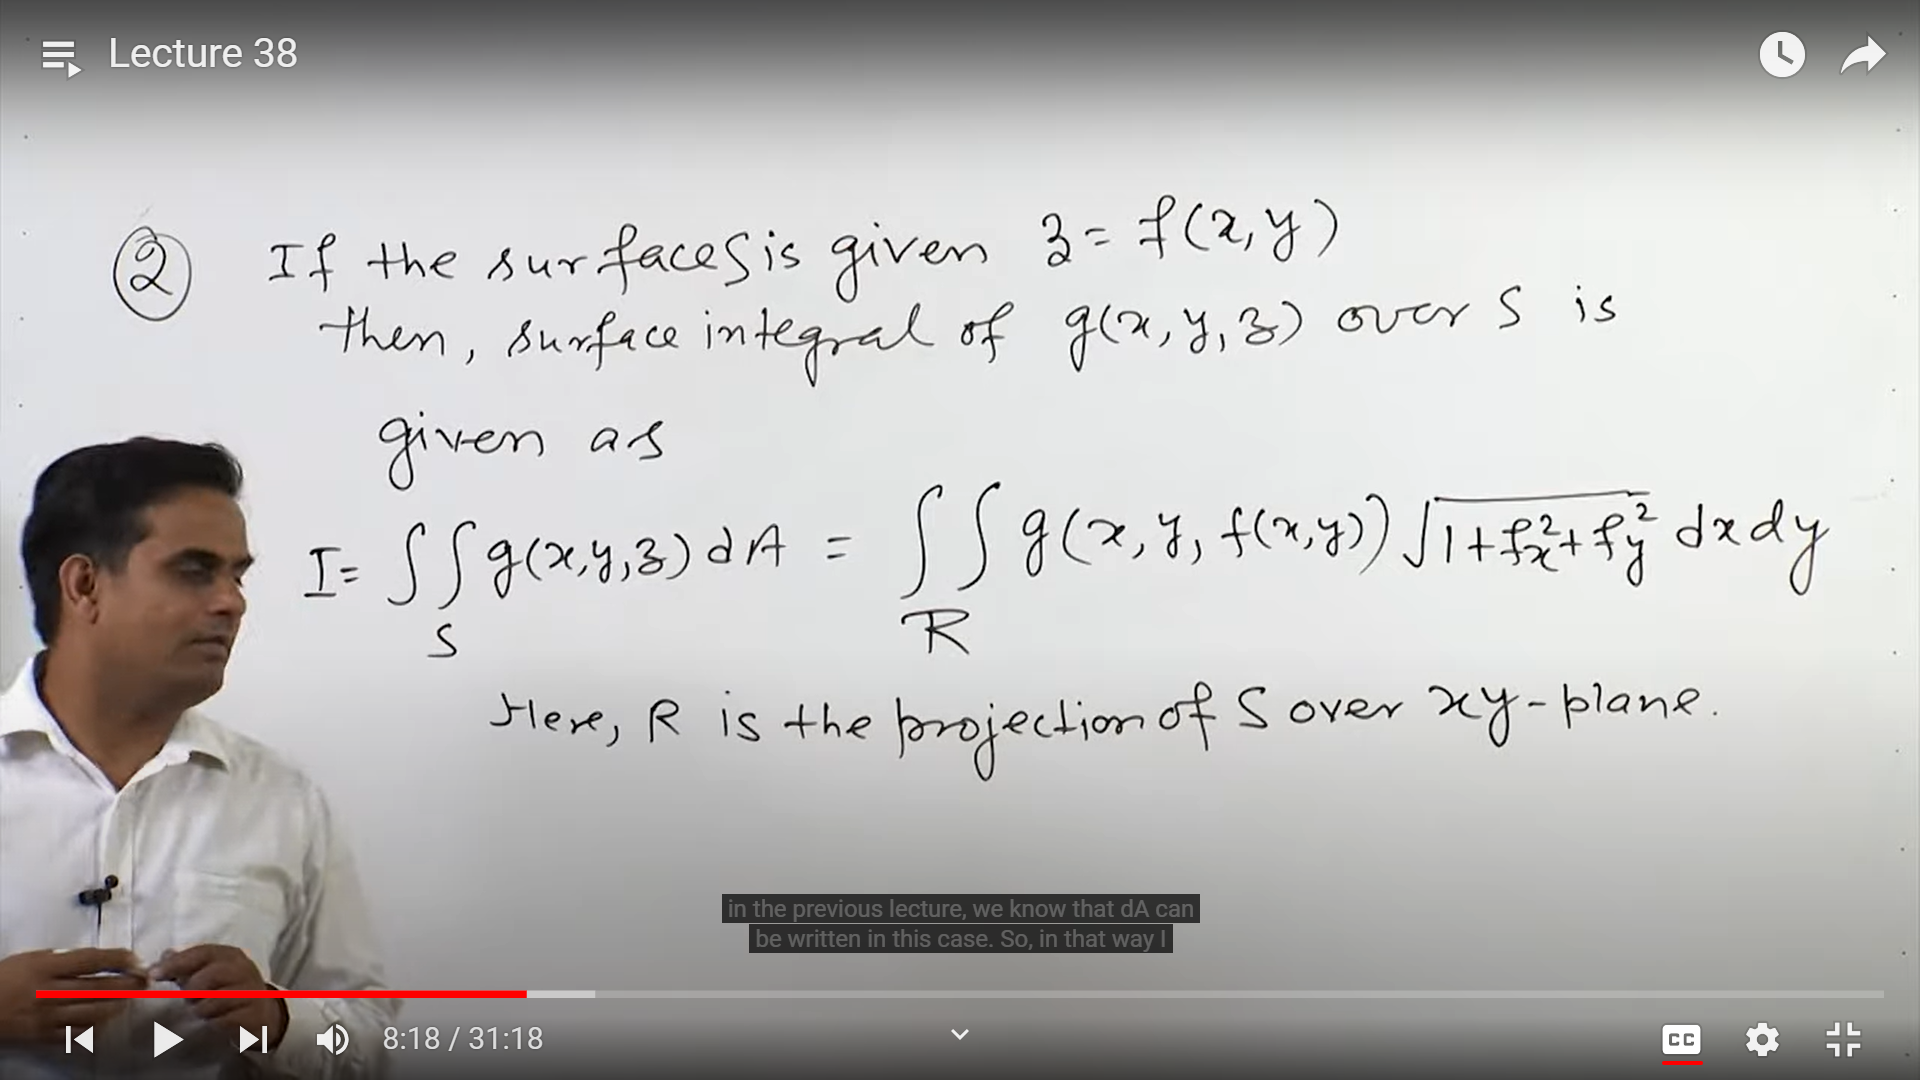 Lecture 38
② If the surface S is given z = f(x, y)
then, surface integral of g(x, y, z) over S is
given as
I = ∫∫_S g(x,y,z) dA = ∫∫_R g(x, y, f(x,y)) √(1+f_x²+f_y²) dx dy
Here, R is the projection of S over xy-plane.
in the previous lecture, we know that dA can
be written in this case. So, in that way I
8:18 / 31:18
CC